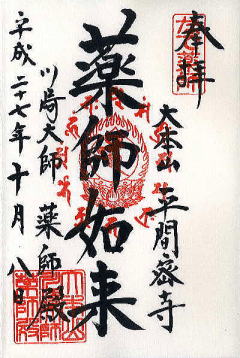 奉拝
大本山平間密寺
薬師如来
川崎大師 薬師殿
平成二十七年十月八日